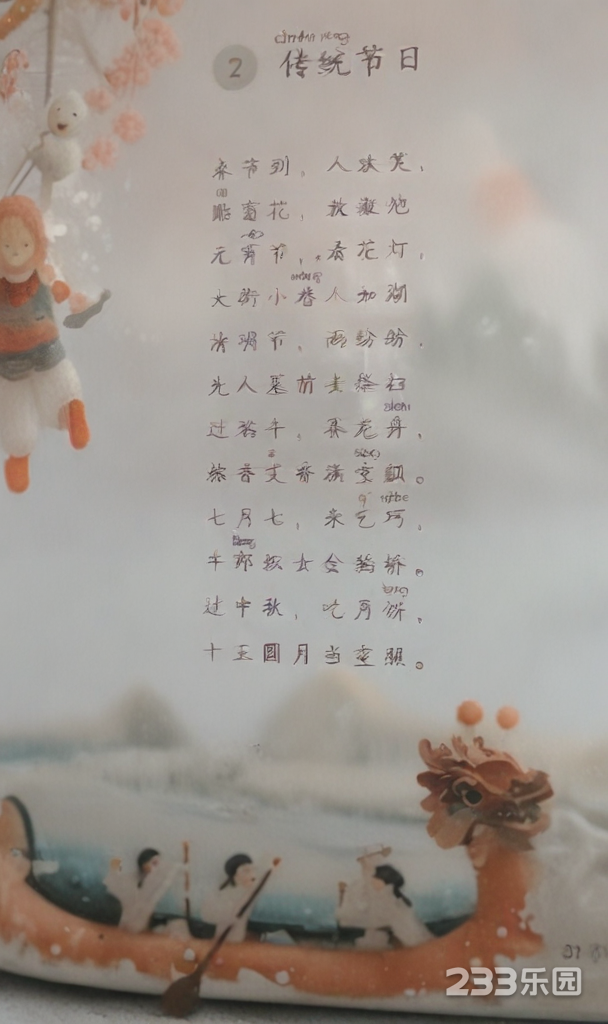 2 传统节日
春节到，人欢笑，
贴窗花，放鞭炮
元宵节，看花灯，
大街小巷人如潮
清明节，雨纷纷，
先人墓前去祭扫
过端午，赛龙舟，
粽香艾香满堂飘。
七月七，来乞巧，
牛郎织女会鹊桥。
过中秋，吃月饼，
十五圆月当空照。
233乐园